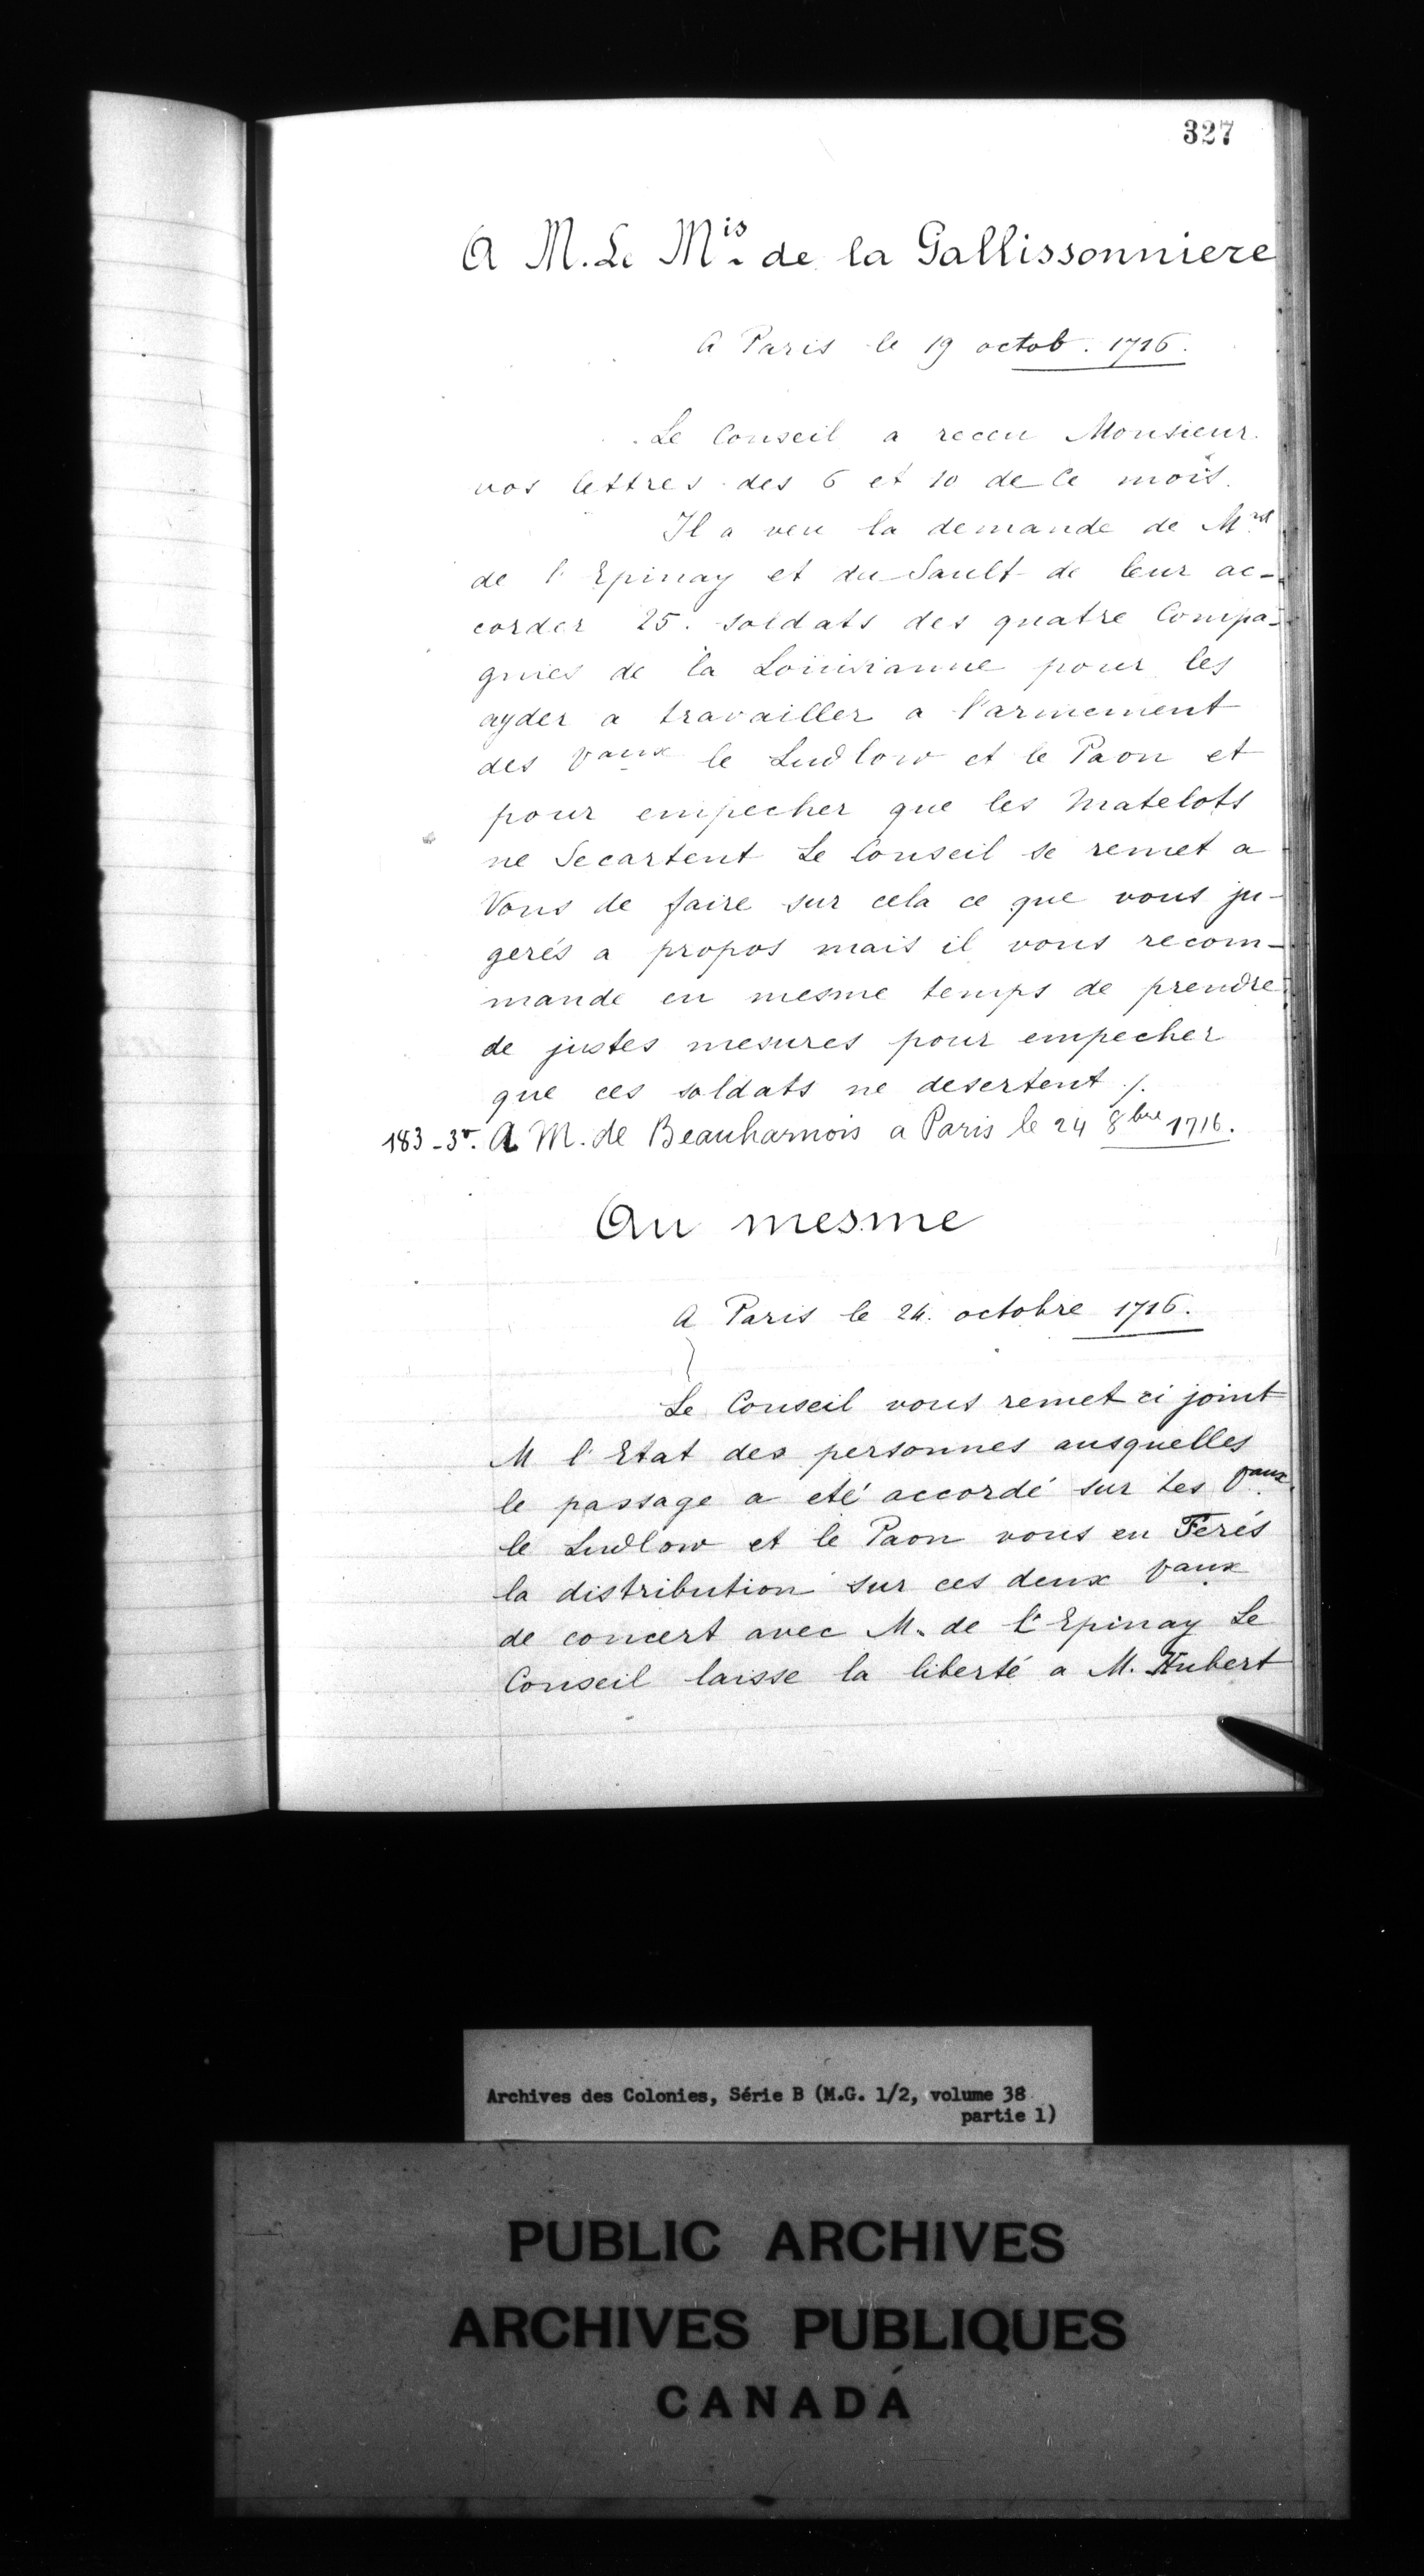 327
A M. Le Mis de la Gallissonniere
A Paris le 19 octob. 1716.
Le Conseil a receu Monsieur.
vos lettres des 6 et 10 de Ce mois.
Il a veu la demande de Mrs
de l'Epinay et du Sault de leur ac-
corder 25. soldats des quatre Compa-
gnies de la Loüisianne pour les
ayder a travailler a l'armement
des Vaux le Ludlow et le Paon et
pour empecher que les Matelots
ne Secartent Le Conseil se remet a
Vous de faire sur cela ce que vous ju-
gerés a propos mais il vous recom-
mande en mesme temps de prendre
de justes mesures pour empecher
que ces soldats ne desertent ./.
183-3º. A M. de Beauharnois a Paris le 24 8bre 1716.
Au mesme
A Paris le 24. octobre 1716.
Le Conseil vous remet ci joint
M l'Etat des personnes ausquelles
le passage a eté accordé sur les Vaux
le Ludlow et le Paon vous en Ferés
la distribution sur ces deux Vaux
de concert avec M. de l'Epinay Le
Conseil laisse la liberté a M. Hubert
Archives des Colonies, Série B (M.G. 1/2, volume 38
partie 1)
PUBLIC ARCHIVES
ARCHIVES PUBLIQUES
CANADA